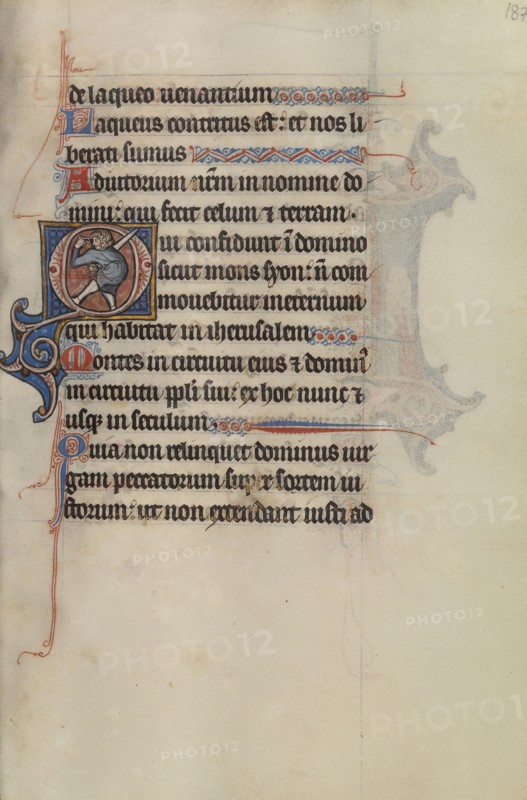 187
de laqueo uenantium
Laqueus contritus est: et nos li
berati sumus
Adiutorium nr̄m in nomine do
mini: qui fecit celum ⁊ terram.
Qui confidunt ī domino
sicut mons syon: n̄ com
mouebitur in eternum
qui habitat in iherusalem
Montes in circuitu eius ⁊ domin̄
in circuitu ppli sui: ex hoc nunc ⁊
usqꝫ in seculum
Quia non relinquet dominus uir
gam peccatorum super sortem iu
storum: ut non extendant iusti ad
PHOTO12